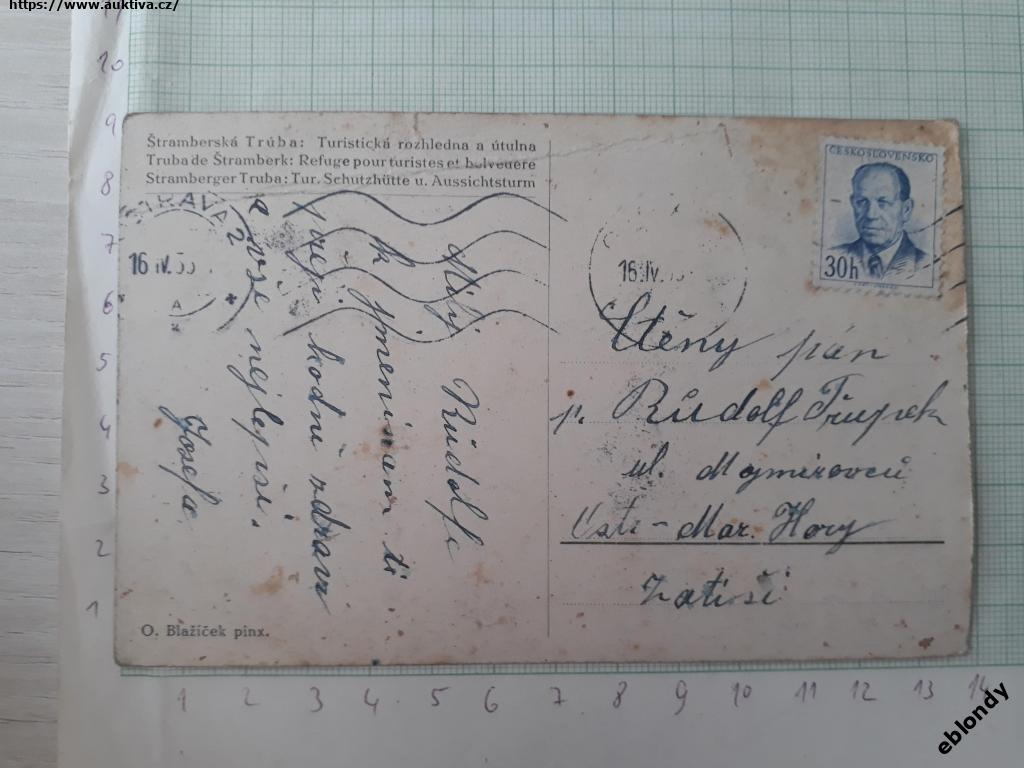 https://www.auktiva.cz/
Štramberská Trúba: Turistická rozhledna a útulna
Truba de Štramberk: Refuge pour turistes et belvedere
Stramberger Truba: Tur. Schutzhütte u. Aussichtsturm
ČESKOSLOVENSKO
30h
16 IV. 55
2
A
16. IV.
Milý Rudolfe
k jmeninam ti
přeji hodně zdraví
a vše nejlepší.
Josefa
Ctěný pán
p. Rudolf Ťrupek
ul. Mojmírovců
Ostr - Mar. Hory
Zátiší
O. Blažíček pinx.
11
10
9
8
7
6
5
4
3
2
1
1 2 3 4 5 6 7 8 9 10 11 12 13 14
eblondy